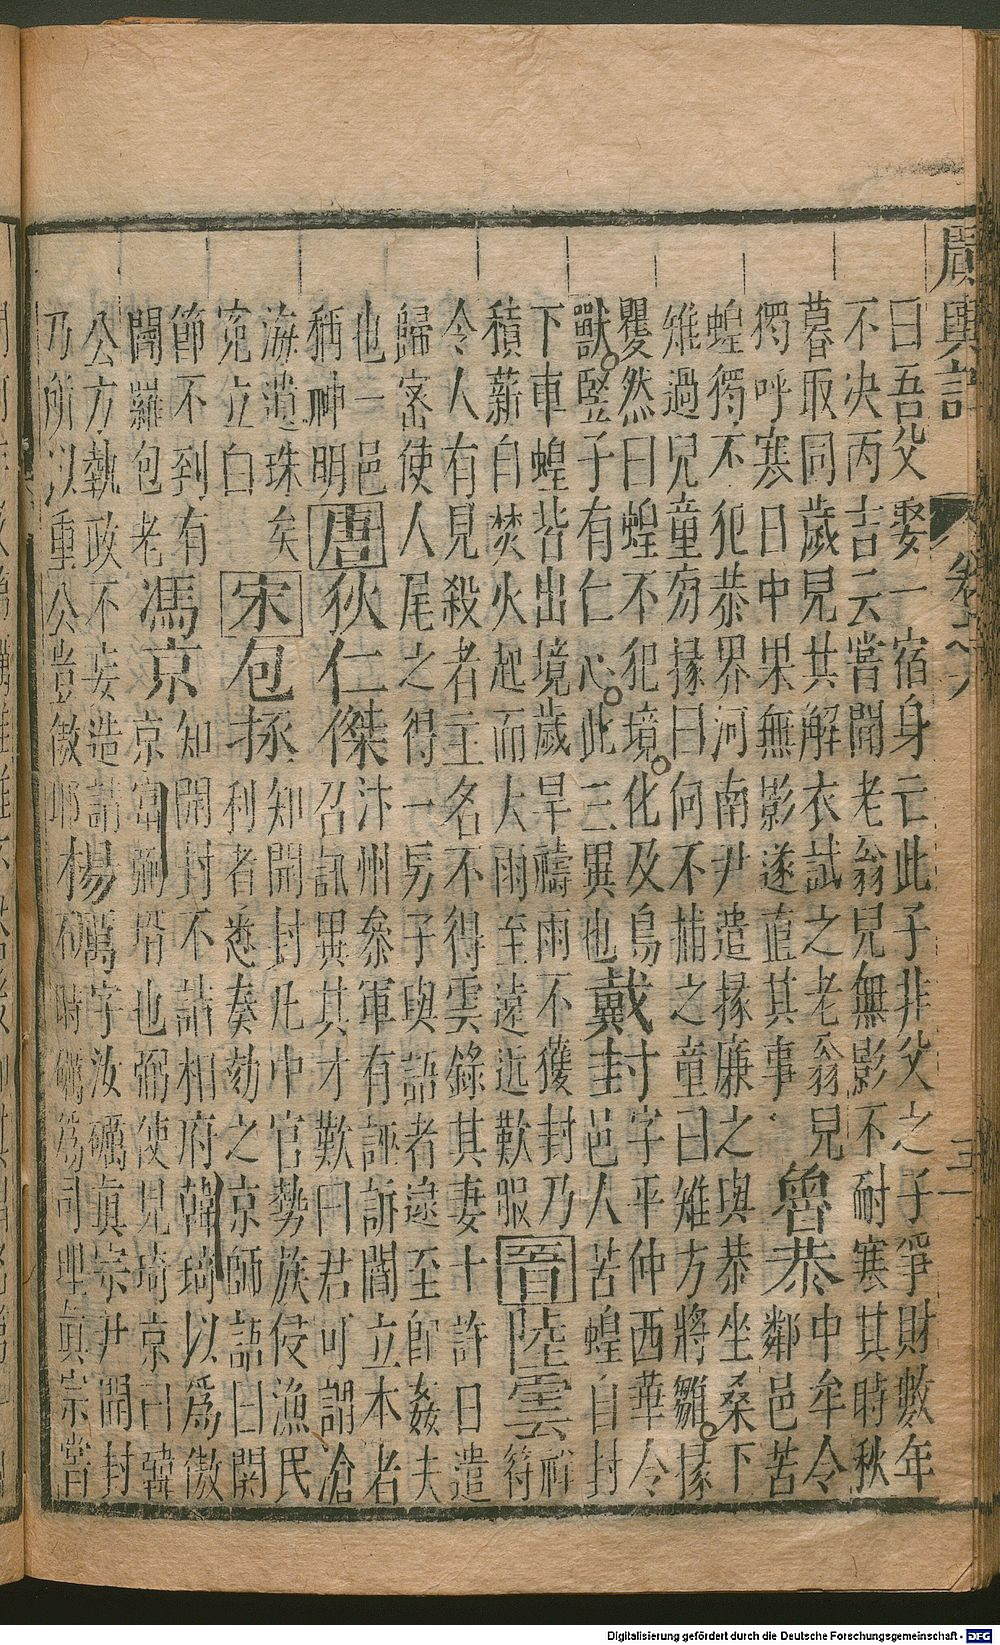 廣輿記 卷之六 三一
曰吾父娶一宿身亡此子非父之子爭財數年
不决丙吉云嘗聞老翁兒無影不耐寒其時秋
暮取同歲兒共解衣試之老翁兒
獨呼寒日中果無影遂直其事
魯恭
中牟令
鄰邑苦
蝗獨不犯恭界河南尹遣掾廉之與恭坐桑下
雉過兒童旁掾曰何不捕之童曰雉方將雛掾
瞿然曰蝗不犯境化及鳥
獸豎子有仁心此三異也
戴封
字平仲西華令
邑人苦蝗自封
下車蝗皆出境歲旱禱雨不獲封乃
積薪自焚火起而大雨至遠近歎服
晉陸雲
祥
符
令人有見殺者主名不得雲錄其妻十許日遣
歸密使人尾之得一男子與語者逮至即姦夫
也一邑
稱神明
唐狄仁傑
汴州叅軍有誣訴閻立本者
召訊異其才歎曰君可謂滄
海遺珠矣
宋包拯
知開封凡中官勢族侵漁民
寃立白
利者悉奏劾之京師語曰關
節不到有
閻羅包老
馮京
知開封不詣相府韓琦以爲傲
京富弼壻也弼使見琦京曰韓
公方執政不妄造詣
乃所以重公豈傲耶
楊礪
字汝礪真宗尹開封
時礪爲司理真宗嘗
Digitalisierung gefördert durch die Deutsche Forschungsgemeinschaft - DFG